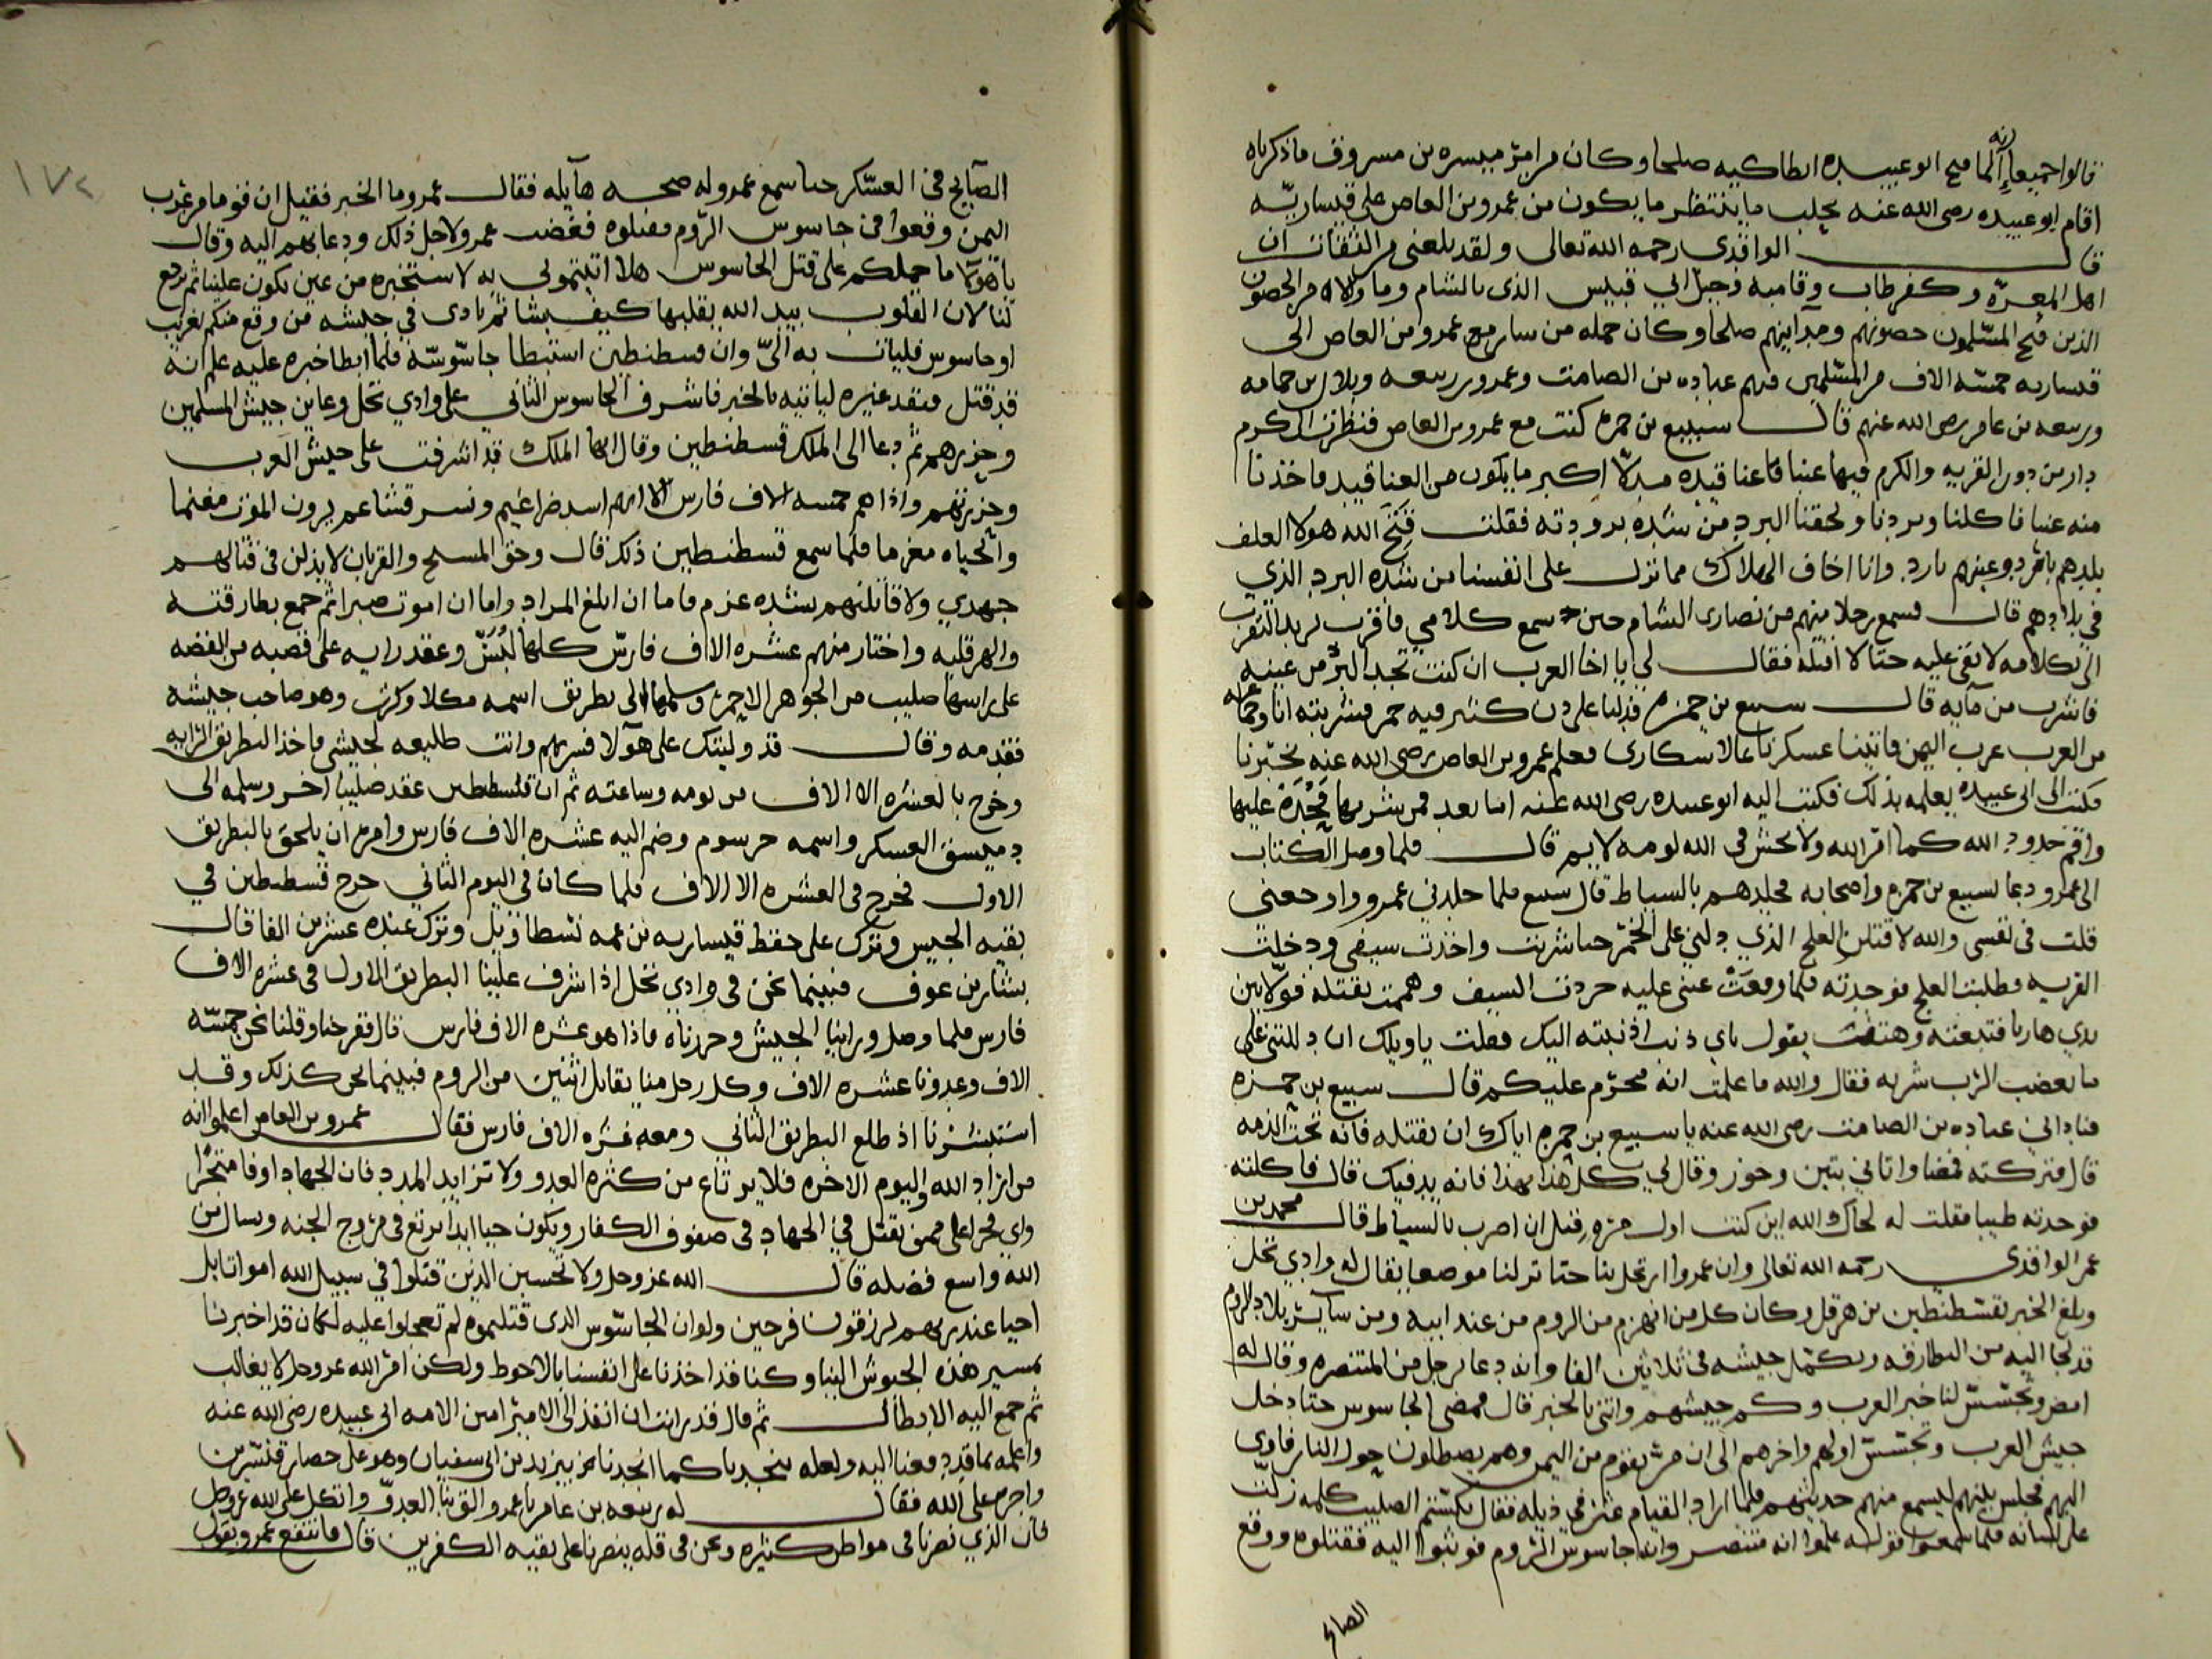 قالوا جميعا إنه لما فتح ابو عبيده انطاكيه صلحا وكان من امر ميسره بن مسروق ما ذكرناه
اقام ابو عبيده رضى الله عنه بحلب ما ينتظر ما يكون من عمرو بن العاص على قيساريه
قال الواقدى رحمه الله تعالى ولقد بلغنى من الثقات ان
اهل المعره وكفرطاب وفاميه وجبل ابي قبيس الذى بالشام وما والاه من الحصون
الذين فتح المسلمون حصونهم ومدآينهم صلحا وكان جمله من سار مع عمرو بن العاص الى
قيساريه خمسه الاف من المسلمين فيهم عباده بن الصامت وعمرو بن ربيعه وبلال بن حمامه
وربيعه بن عامر رضى الله عنهم قال سبيع بن حمزه كنت مع عمرو بن العاص فنظرت الى كرم
دارس دون القريه والكرم فيها عنبا فاعناقيده مدلا اكبر ما يكون من العناقيد فاخذنا
منه عنبا فاكلنا وبردنا ولحقنا البرد من شده برودته فقلت قبح الله هولا العلف
بلدهم بارد وعنبهم بارد وانا اخاف الهلاك مما نزل على انفسنا من شده البرد الذي
في بلادهم قال فسمع رجلا منهم من نصارى الشام حين سمع كلامي فاقترب يريد التقرب
الى بكلامه لابقى عليه حتا لا اقتله فقال لي يا اخا العرب ان كنت تجد البرد من عنبه
فاشرب من مآيه قال سبيع بن حمزه فدلنا على دن كثير فيه خمر فشربته انا وجماعه
من العرب عرب اليمن فاتينا عسكرنا سكارى فعلم عمرو بن العاص رضى الله عنه بخبرنا
فكتب الى ابى عبيده يعلمه بذلك فكتب اليه ابو عبيده رضى الله عنه اما بعد فمن شربها فحده عليها
واقم حدود الله كما امر الله ولا تخش فى الله لومه لايم قال فلما وصل الكتاب
الى عمرو دعا لسبيع بن حمزه واصحابه فجلدهم بالسياط قال سبيع فلما جلدني عمرو واوجعنى
قلت فى نفسى والله لاقتلن العلج الذي دلني على الخمر حتا شربت واخذت سيفى ودخلت
القريه فطلبت العلج فوجدته فلما وقعت عينى عليه جردت السيف وهممت بقتله فولا بين
يدي هاربا فتبعته وهتفت يقول باي ذنب اذنبته اليك فقلت ياويلك ان دللتنى على
ما يغضب الرب شربه فقال والله ما علمت انه محرم عليكم قال سبيع بن حمزه
فناداني عباده بن الصامت رضى الله عنه يا سبيع بن حمزه اياك ان تقتله فانه تحت الذمه
قال فتركته فمضا واتاني بتين وجوز وقال لي كل هذا بهذا فانه يدفيك قال فاكلته
فوجدته طيبا فقلت له لحاك الله اين كنت اول مره قبل ان اضرب بالسياط قال محمد بن
عمر الواقدي رحمه الله تعالى وان عمروا ارتحل بنا حتا نزلنا موضعا يقال له وادي نخل
وبلغ الخبر بقسطنطين بن هرقل وكان كل من انهزم من الروم من عند ابيه ومن سآير بلاد الروم
قد لجا اليه من البطارقه وتكمل جيشه فى ثلاثين الفا وانه دعا رجل من المتنصره وقال له
امض وتجسس لنا خبر العرب وكم جيشهم واتنى بالخبر قال فمضى الجاسوس حتا دخل
جيش العرب وتجسس اولهم واخرهم الى ان مر بقوم من اليمن وهم يصطلون حول النار فاوى
اليهم فجلس بينهم ليسمع منهم حديثهم فلما اراد القيام عثر في ذيله فقال بسم الصليب كلمه زلت
على لسانه فلما سمعوا قوله علموا انه متنصر وانه جاسوس الروم فوثبوا اليه فقتلوه ووقع
الصايح
١٧٢
الصآيح فى العسكر حتا سمع عمرو له صحبه هآيله فقال عمرو ما الخبر فقيل ان قوما من عرب
اليمن وقعوا فى جاسوس الروم فقتلوه فغضب عمرو لاجل ذلك ودعا بهم اليه وقال
يا هولا ما حملكم على قتل الجاسوس هلا اتيتمونى به لاستخبره من عين تكون علينا ثم ترجع
لنا لان القلوب بيد الله يقلبها كيف يشا ثم نادى في جيشه من وقع منكم بغريب
او جاسوس فليات به الىّ وان قسطنطين استبطا جاسوسه فلما ابطا خبره عليه علم انه
قد قتل فنفد غيره لياتيه بالخبر فاشرف الجاسوس الثاني على وادي نخل وعاين جيش المسلمين
وحزرهم ثم دعا الى الملك قسطنطين وقال ايها الملك قد اشرفت على جيش العرب
وحزرتهم واذا هم خمسه الاف فارس الا انهم اسد ضراغيم ونسر قشاعم يرون الموت مغنما
والحياه مغرما فلما سمع قسطنطين ذلك قال وحق المسيح والقربان لابذلن فى قتالهم
جهدي ولاقاتلنهم بشده عزم فاما ان ابلغ المراد واما ان اموت صبرا ثم جمع بطارقته
والهرقليه واختار منهم عشره الاف فارس كلها لبس وعقد رايه على قصبه من الفضه
على راسها صليب من الجوهر الاحمر وسلمها الى بطريق اسمه مكلاوكرن وهو صاحب جيشه
فقدمه وقال قد وليتك على هولا فسر بهم وانت طليعه لجيشى فاخذ البطريق الرايه
وخرج بالعشره الاالاف من يومه وساعته ثم ان قسطنطين عقد صليبا اخر وسلمه الى
دميسق العسكر واسمه جرسوم وضم اليه عشره الاف فارس وامره ان يلحق بالبطريق
الاول فخرج فى العشره الا الاف فلما كان فى اليوم الثاني خرج قسطنطين في
بقيه الجيش وترك على حفظ قيساريه بن عمه نسطاوزيل وترك عنده عشرين الفا قال
بشار بن عوف فبينما نحن فى وادي نخل اذا اشرف علينا البطريق الاول فى عشره الاف
فارس فلما وصل وراينا الجيش وحزرناه فاذا هو عشره الاف فارس قال ففرحنا وقلنا نحن خمسه
الاف وعدونا عشره الاف وكل رجل منا يقابل اثنين من الروم فبينما نحن كذلك وقد
استبشرنا اذ طلع البطريق الثانى ومعه عشره الاف فارس فقال عمرو بن العاص اعلموا انه
من اراد الله واليوم الاخره فلا يرتاع من كثره العدو ولا تزايد المدد فان الجهاد اوفا متجرا
واي فخر اعلى ممن يقتل في الجهاد فى صفوف الكفار ويكون حيا ابدا يرتع فى مروج الجنه وينال من
الله واسع فضله قال الله عز وجل ولا تحسبن الذين قتلوا في سبيل الله امواتا بل
احيا عند ربهم يرزقون فرحين ولو ان الجاسوس الذى قتلتموه لم تعجلوا عليه لكان قد اخبرنا
بمسير هذه الجيوش الينا وكنا قد اخذنا على انفسنا بالاحوط ولكن امر الله عز وجل لا يغالب
ثم جمع اليه الابطال ثم قال قد رايت ان انفذ الى الامير امين الامه ابى عبيده رضى الله عنه
واعلمه بما قد دفعنا اليه ولعله ينجدنا كما انجدنا يزيد بن ابى سفيان وهو على حصار قنسرين
واجره على الله فقال له ربيعه بن عامر يا عمرو الق بنا العدو واتكل على الله عز وجل
فان الذي نصرنا فى مواطن كثيره ونحن فى قله ينصرنا على بقيه الكفرين قال فانتفع عمرو بقول